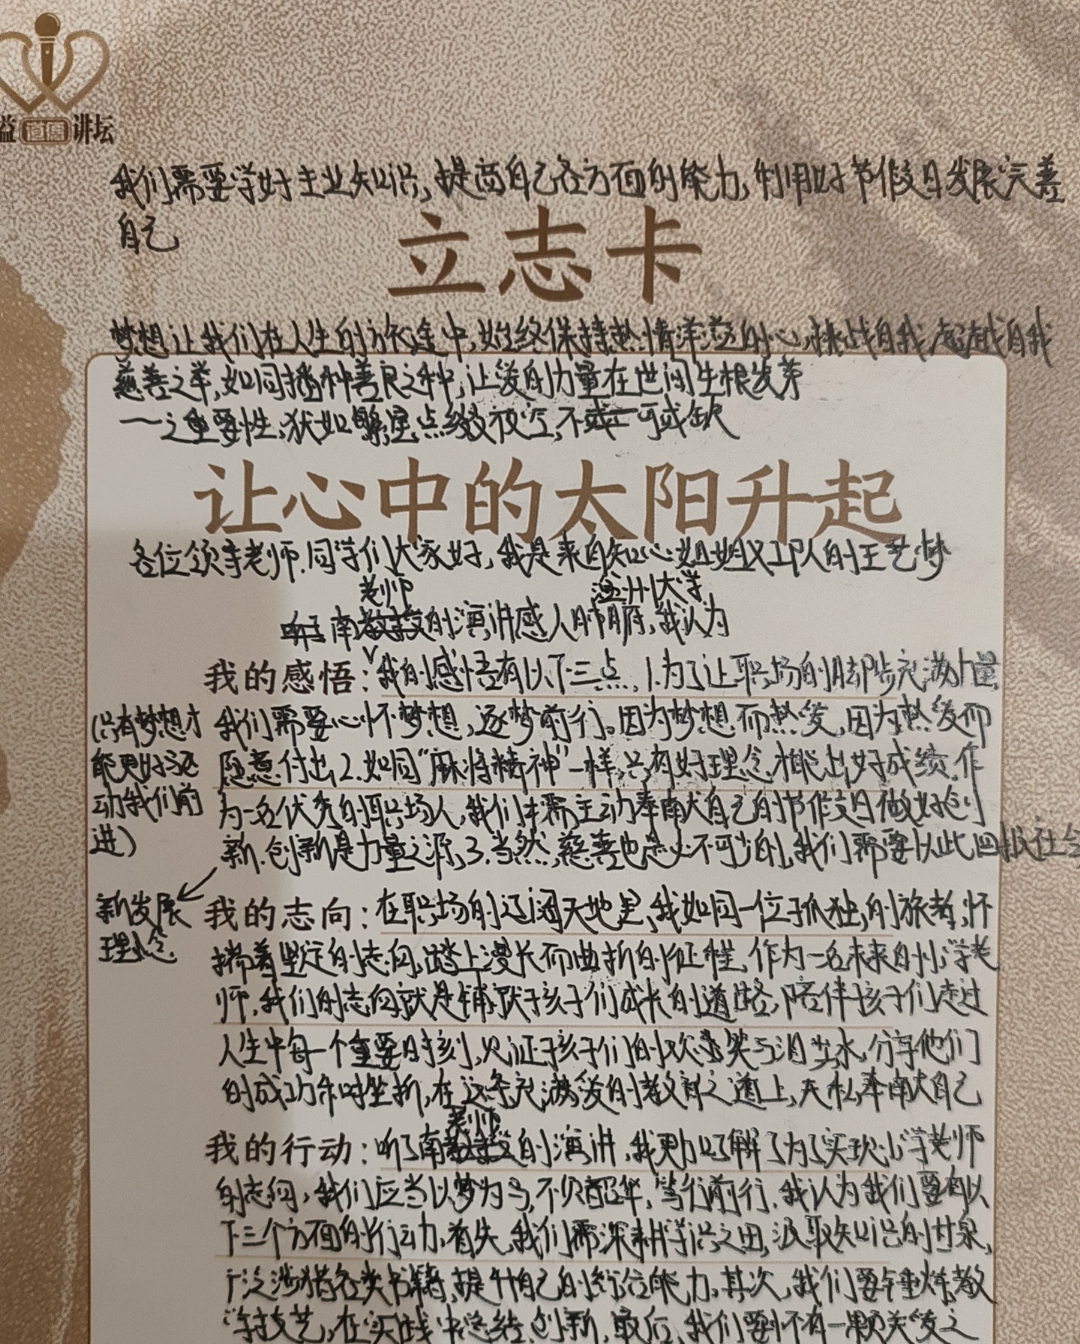 益道德讲坛
我们需要学好专业知识,提高自己各方面的能力,利用好节假日发展完善
自己
立志卡
梦想让我们在人生的旅途中,始终保持热情洋溢的心,挑战自我,超越自我
慈善之举,如同播种善良之种,让爱的力量在世间生根发芽
一之重要性,犹如繁星点缀夜空,不可或缺
让心中的太阳升起
各位领导老师.同学们大家好,我是来自知心姐姐义工队的王艺梦
老师 温州大学
听了南的演讲感人肺腑,我认为
我的感悟:我的感悟有以下三点,1.为了让职场的脚步充满力量
(只有梦想才 我们需要心怀梦想,逐梦前行。因为梦想而热爱,因为热爱而
能更好运 愿意付出2.如同“麻将精神”一样,只有好理念,才能出好成绩.作
动我们前 为一名优秀的职场人,我们需主动奉献自己的节假日做好创
进) 新.创新是力量之源,3.当然,慈善也是必不可少的,我们需要以此回报社会
新发展 我的志向:在职场的辽阔天地里,我如同一位孤独的旅者,怀
理念 揣着坚定的志向,踏上漫长而曲折的征程,作为一名未来的小学老
师,我们的志向就是铺就孩子们成长的道路,陪伴孩子们走过
人生中每一个重要时刻,见证孩子们的欢笑与泪水,分享他们
的成功和挫折,在这条充满爱的教育之道上,无私奉献自己
老师
我的行动:听了南的演讲,我更加了解了为了实现小学老师
的志向,我们应当以梦为马,不负韶华,笃行前行.我认为我们要有以
下三个方面的行动,首先,我们需深耕学识之田,汲取知识的甘泉,
广泛涉猎各类书籍,提升自己的综合能力.其次,我们要锤炼教
学技艺,在实践中总结创新,最后,我们要怀有一颗关爱之